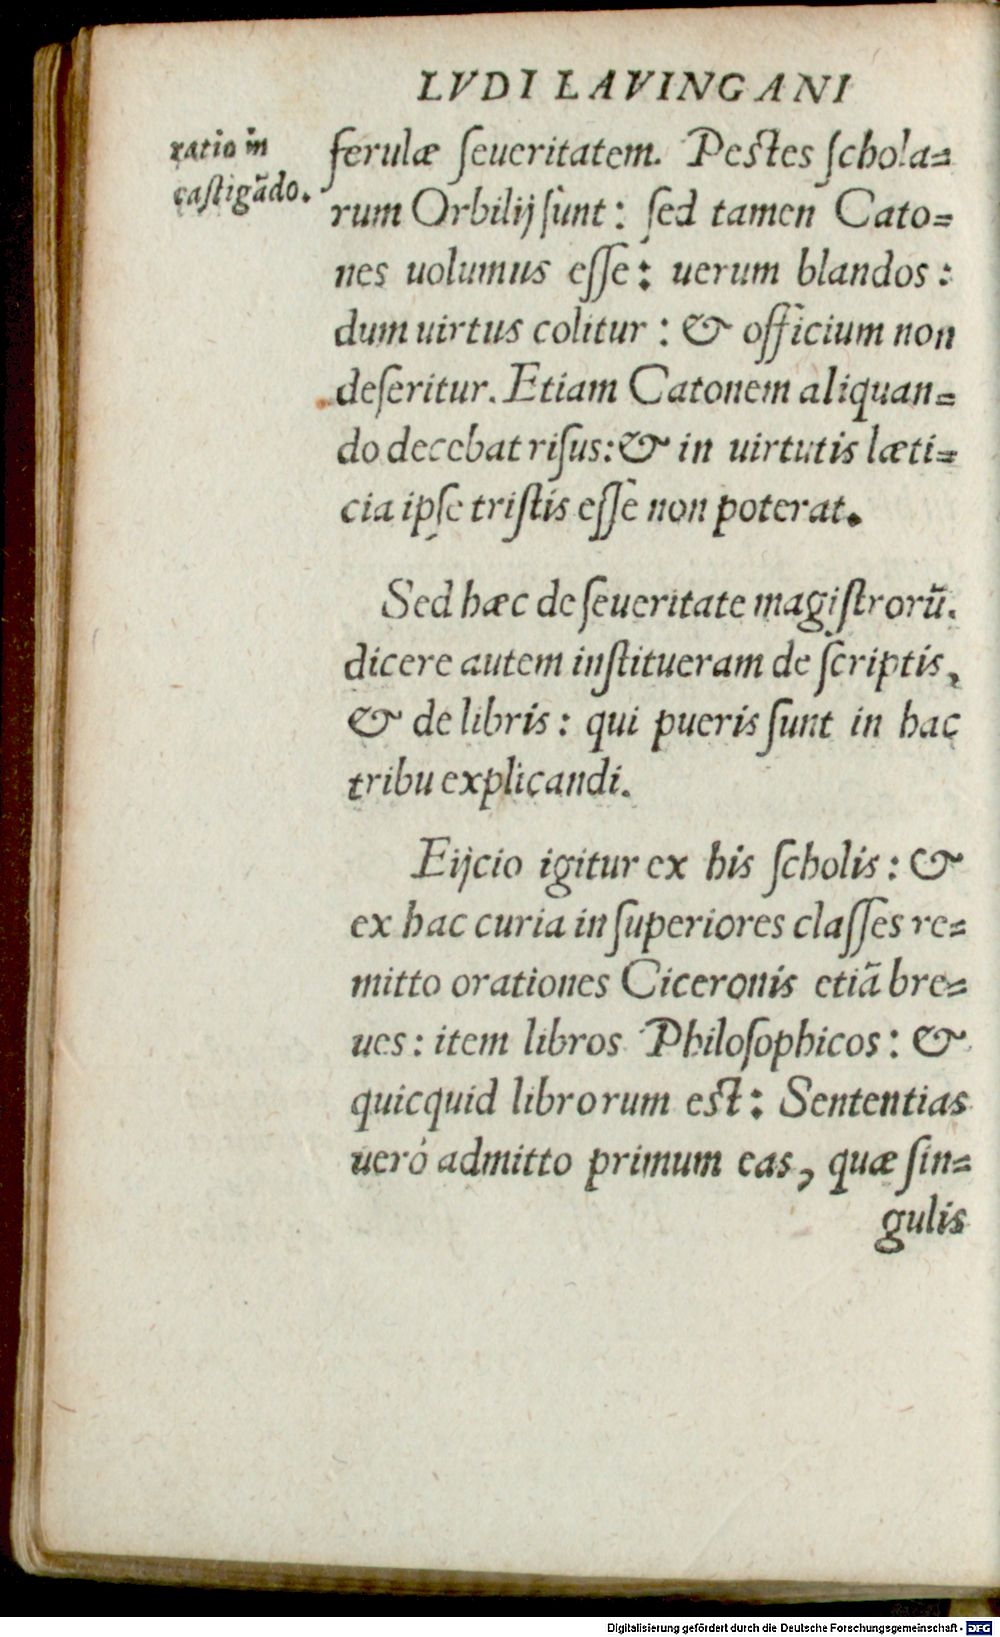 LVDI LAVINGANI
ratio in
castigãdo.
ferulæ ſeueritatem. Peſtes ſchola=
rum Orbilij ſunt: ſed tamen Cato=
nes uolumus eſſe: uerum blandos:
dum uirtus colitur: & officium non
deſeritur. Etiam Catonem aliquan=
do decebat riſus: & in uirtutis læti=
cia ipſe triſtis eſſe non poterat.
Sed hæc de ſeueritate magiſtrorũ.
dicere autem inſtitueram de ſcriptis,
& de libris: qui pueris ſunt in hac
tribu explicandi.
Eijcio igitur ex his ſcholis: &
ex hac curia in ſuperiores claſſes re=
mitto orationes Ciceronis etiã bre=
ues: item libros Philoſophicos: &
quicquid librorum eſt: Sententias
ueró admitto primum eas, quæ ſin=
gulis
Digitalisierung gefördert durch die Deutsche Forschungsgemeinschaft - DFG